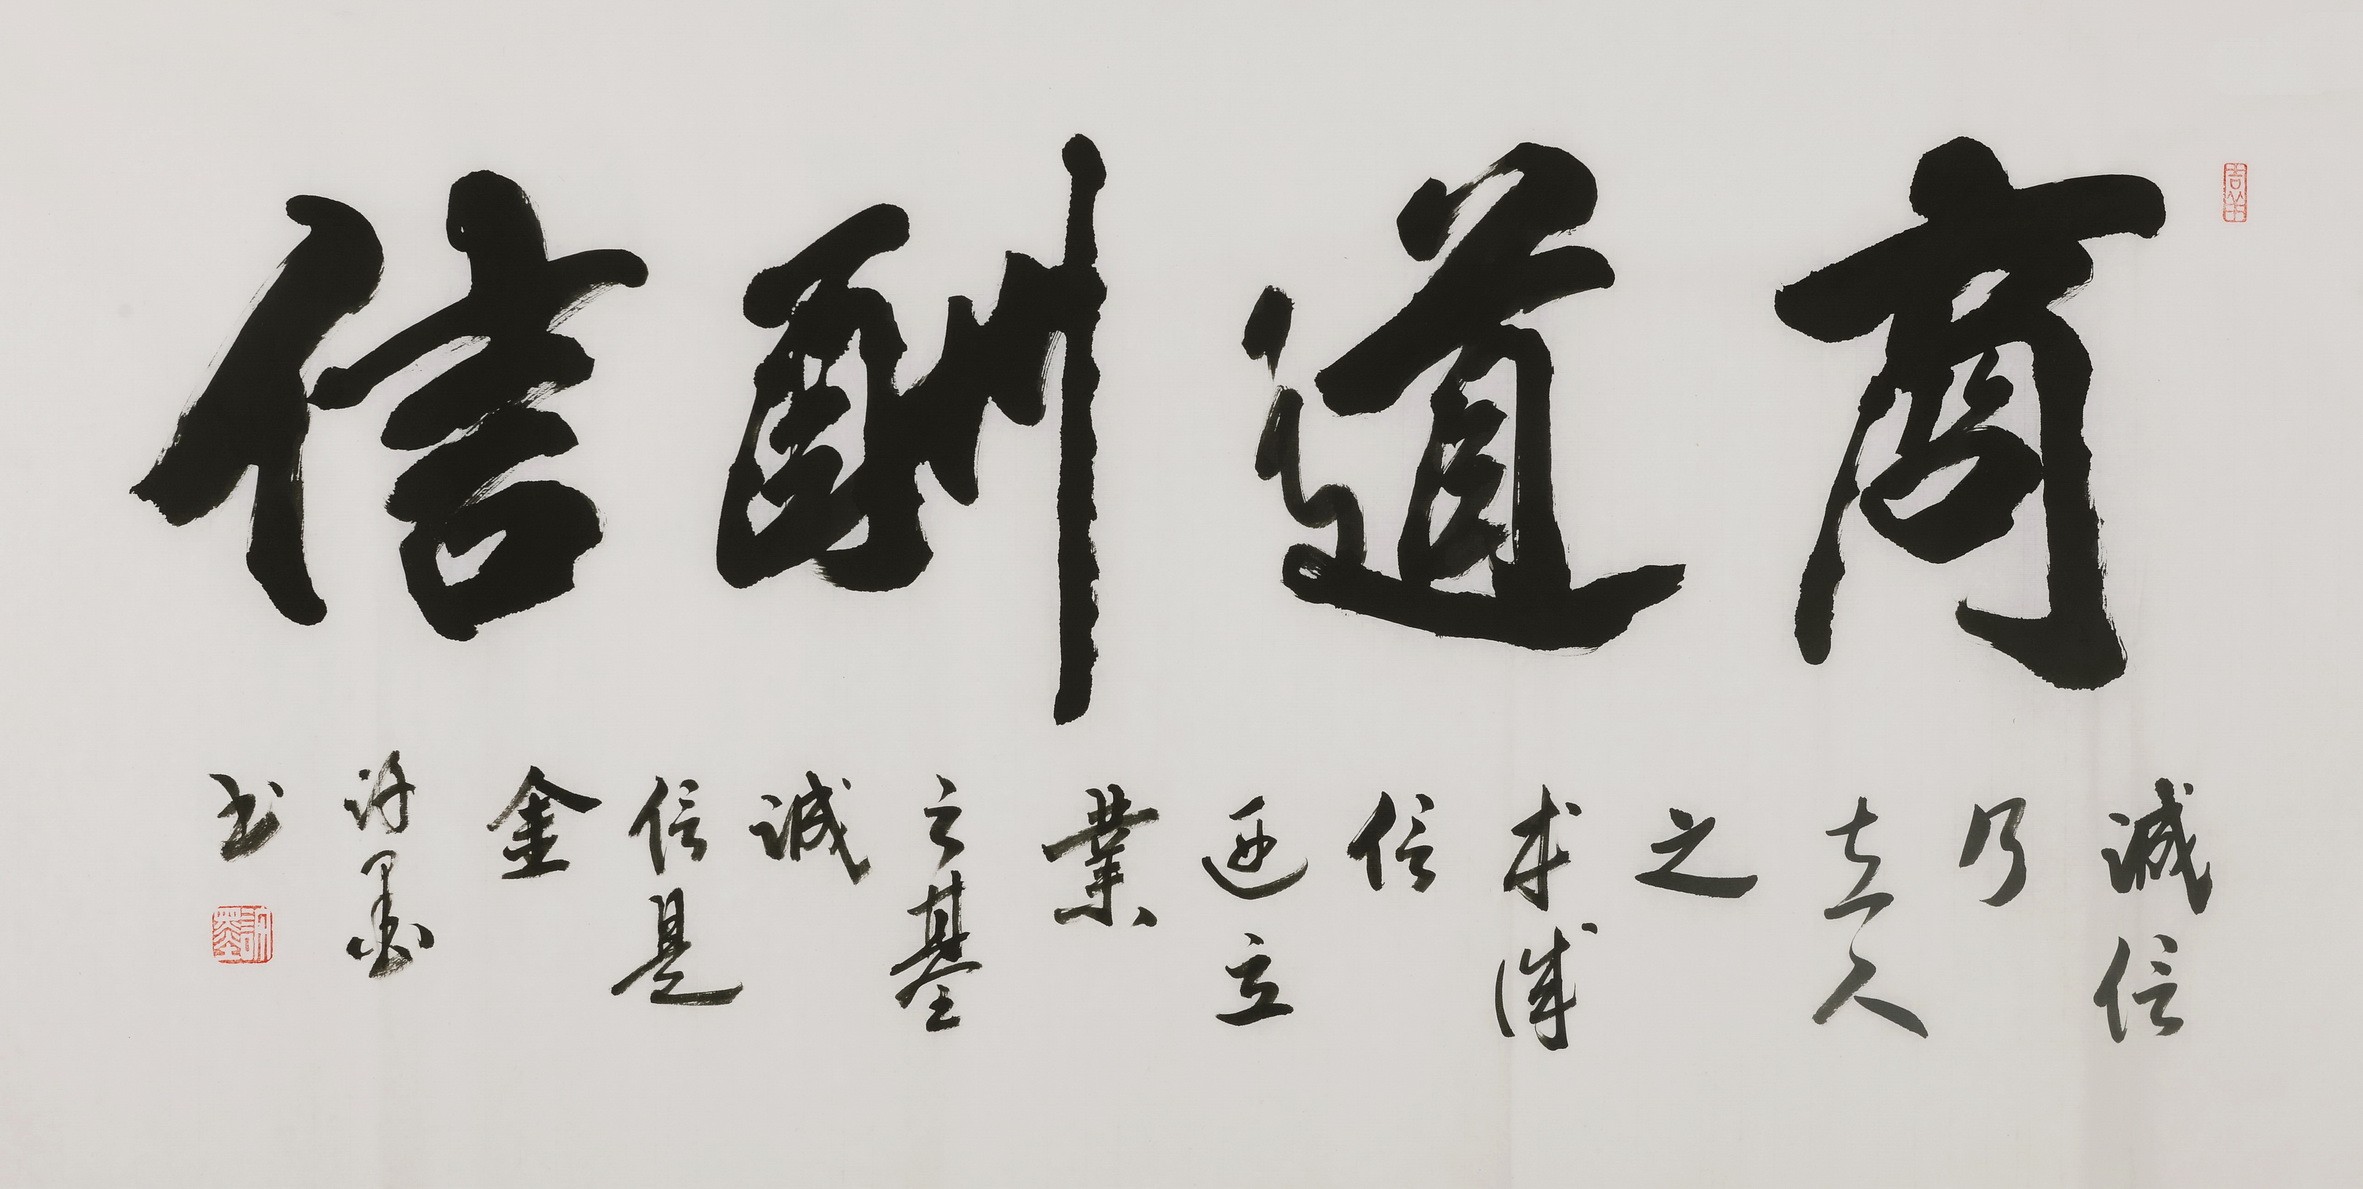 商道酬信
誠信
乃
立人
之
本誠
信
迺立
業
之基
誠
信是
金
许墨
书
許墨